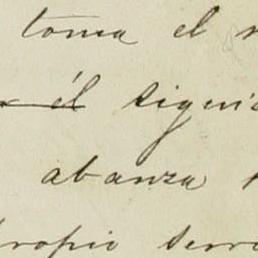 toma el
él sigui
abanza
propio terr